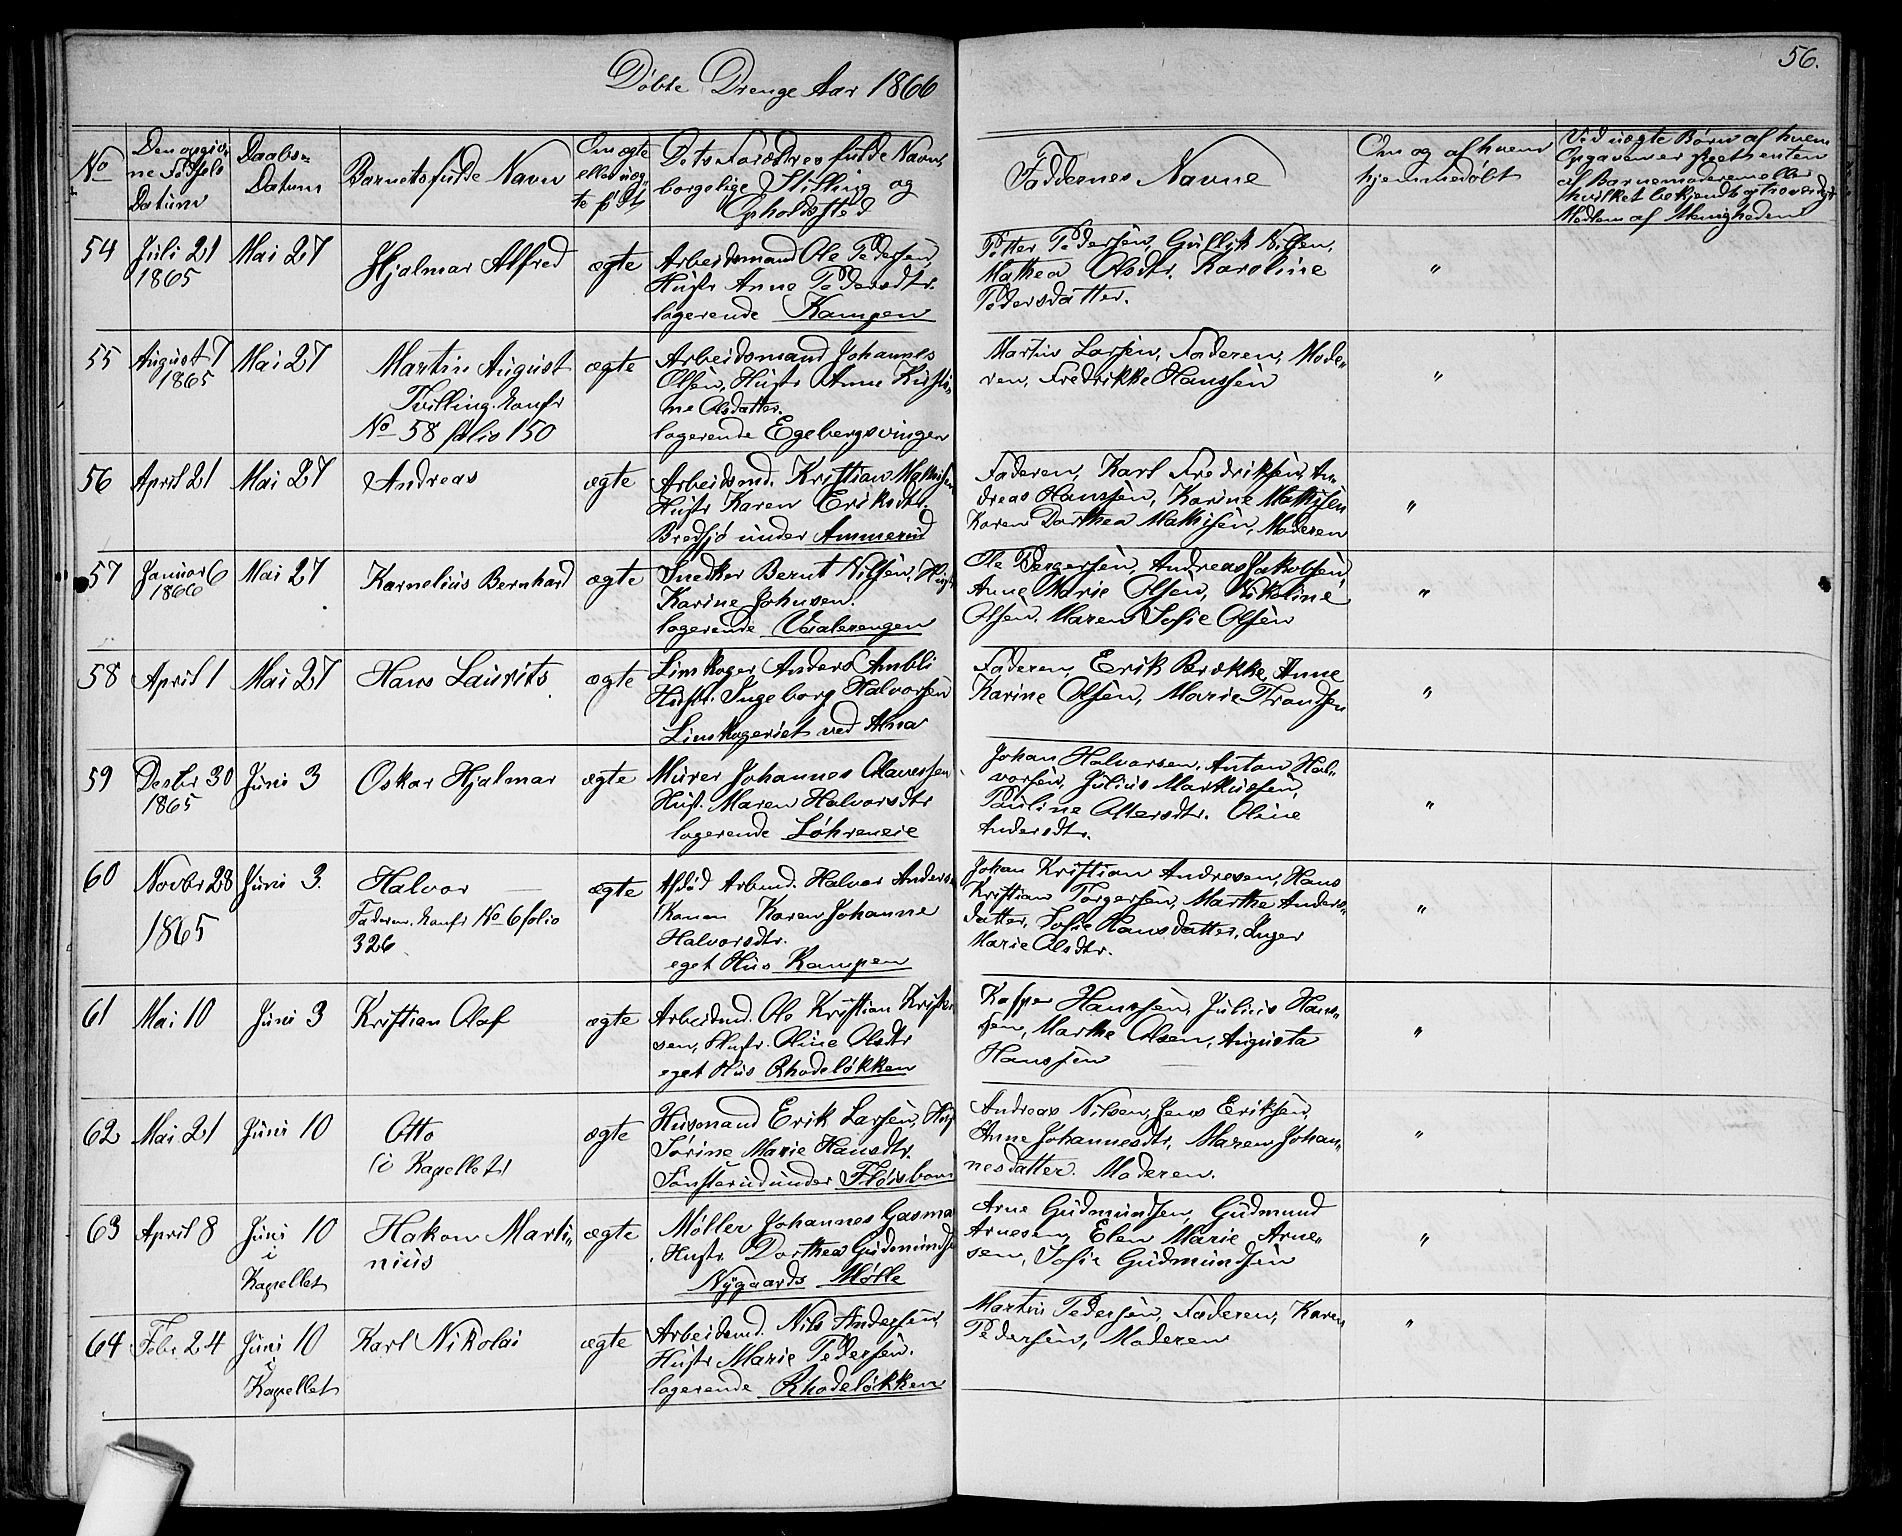 Döbte Drenge Aar 1866
56.
No
Den opgiv-
ne Födsels
Datum
Daabs-
Datum
Barnets fulde Navn
Om ægte
eller uæg-
te födt
Dets Forældres fulde Navn,
borgelige Stilling og
Opholdssted
Faddernes Navne
Om og af hvem
hjemmedöbt
Ved uægte Börn af hvem
Opgaven er skeet enten
af Barnemoderen eller
hvilket bekjendt og troværdigt
Medlem af Menigheden
54
Juli 21
1865
Mai 27
Hjalmar Alfred
ægte
Arbeidsmand Ole Pedersen,
Hustr Anne Pedersdtr.
logerende Kampen
Petter Pedersen, Gullik Nilsen,
Mathea Olsdtr. Karoline
Pedersdatter.
"
55
August 7
1865
Mai 27
Martin August
Tvilling. konfr
No 58 folio 150
ægte
Arbeidsmand Johannes
Olsen, Hustr Anne Kirsti-
ne Olsdatter.
logerende Egebergsvingen
Martin Larsen, Faderen, Mode-
ren, Fredrikke Hanssen
"
56
April 21
Mai 27
Andreas
ægte
Arbeidsmd. Kristian Mathisen
Hustr Karen Eriksdtr.
Bredsjö under Ammerud
Faderen, Karl Fredriksen, An-
dreas Hanssen, Karine Mathisen
Karen Dorthea Mathisen, Moderen
"
57
Januar 6
1866
Mai 27
Karnelius Bernhard
ægte
Snedker Bernt Nilsen, Hust
Karine Johnsen.
logerende Vaalerengen
Ole Torgersen, Andreas Jakobsen,
Anne Marie Olsen, Nikoline
Olsen, Maren Sofie Olsen
"
58
April 1
Mai 27
Hans Laurits
ægte
Limkoger Anders Ambli
Hustr. Ingeborg Halvorsen
Limkogeriet ved Alna
Faderen, Erik Brække, Anne
Karine Olsen, Marie Trondsen
"
59
Desbr 30
1865
Juni 3
Oskar Hjalmar
ægte
Murer Johannes Olavessen
Hust. Maren Halvorsdtr
logerende Löhreneie
Johan Halvorsen, Anton Hal-
vorsen, Julius Markussen,
Pauline Ottersdtr. Oline
Andersdtr.
"
60
Novbr 28
1865
Juni 3.
Halvor
Faderen, konfr No 6 folio
326
ægte
Afdöd Arbmd. Halvor Anders-
Konen Karen Johanne
Halvorsdtr.
eget Hus Kampen
Johan Kristian Andresen, Hans
Kristian Torgersen, Marthe Anders-
datter, Sofie Hansdatter, Inger
Marie Olsdtr.
"
61
Mai 10
Juni 3
Kristian Olaf
ægte
Arbeidmd. Ole Kristian Kristen-
sen, Hustr. Oline Olsdtr
eget Hus Rhodelökken
Kasper Hanssen, Julius Hans-
sen, Marthe Olsen, Augusta
Hanssen
"
62
Mai 21
Juni 10
Otto
(i Kapellet)
ægte
Husmand Erik Larsen, Hust
Sörine Marie Hansdtr.
Sönsterud under Flöisbonn
Andreas Nilsen, Jens Eriksen,
Anne Johannesdtr, Maren Johan-
nesdatter. Moderen.
"
63
April 8
Juni 10
i
Kapellet
Hakon Marti-
nius
ægte
Möller Johannes Gasma
Hustr Dorthea Gudmunds
Nygaards Mölle
Arne Gudmundsen, Gudmund
Arnesen, Elen Marie Arne-
sen, Sofie Gudmundsen
"
64
Febr 24
Juni 10
i
Kapellet
Karl Nikolai
ægte
Arbeidsmd. Nils Andersen,
Hustr Marie Pedersen.
logerende Rhodelökken
Martin Pedersen, Faderen, Karen
Pedersen, Moderen
"